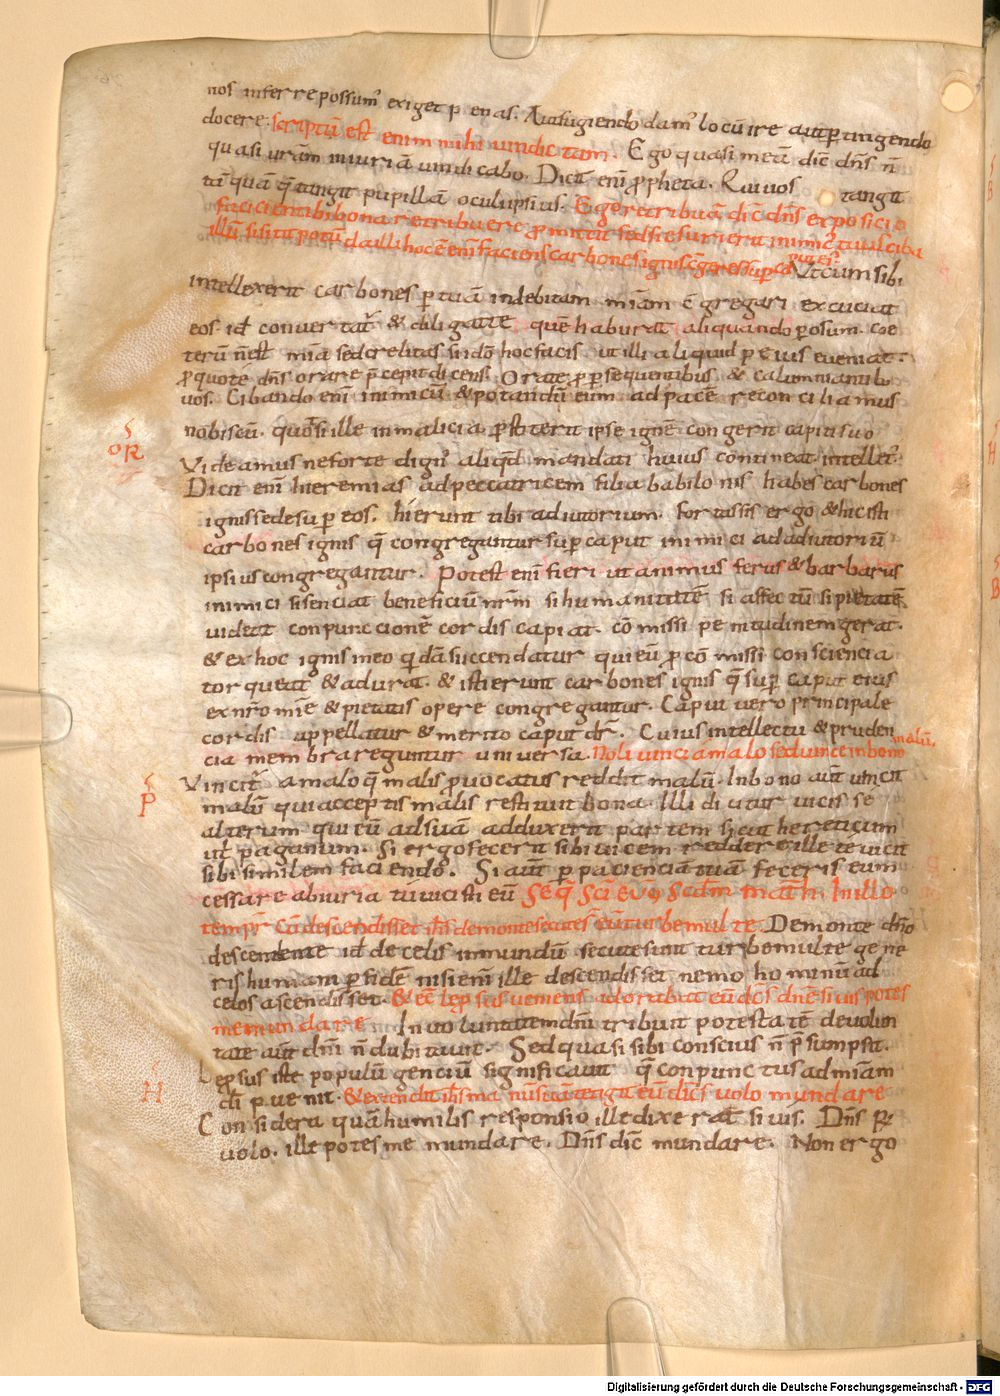 nos inferre possum᷒ exiget p̱ enas. Aut fugiendo dam᷒ locū ire aut ꝑ tingendo
docere. scriptū est enim mihi uindictam. Ego quasi meā dic̄ dn̄s n̄
quasi ur̄am iniuriā uindicabo. Dicit eni᷒ ꝓpheta. Qui uos tangit
tā quā q̄ tangit pupillā oculi ipsius. Ego retribuā dic̄ dn̄s
illū si sitit potū da illi hoc enī faciens carbones ignis Vt cum sibi
intellexerit carbones ꝑ tuā indebitam miām c̄gregari excuciat
eos. id̄ conuertat᷒ & diligat te quē habuerat aliquando ꝑosum. Coe
terū n̄ est mīa sed crudelitas si idō hoc facis ut illi aliquid peius eueniat.
ꝓ quo te dn̄s orare p̄cepit dicens. Orate ꝓ ꝑsequentibus & calumniantib᷒
uos. Cibando enī inimicū & potandū eum ad pacē reconciliamus
nobiscū. quodsi ille in malicia ꝑstiterit ipse ignē congerit capiti suo
OR
Videamus ne forte dignū aliqd̄ mandati huius contineat intellec᷒.
Dicit enī hieremias ad peccatricem filia babilonis habes carbones
ignis sede suꝑ eos. hi erunt tibi adiutorium. fortassis ergo & hic isti
carbones ignis q̄ congregantur suꝑ caput inimici ad adiutoriū
ipsius congregantur. Potest enī fieri ut animus ferus & barbarus
inimici si senciat beneficiū nr̄m si humanitatē si affectū si pietatē
uideat conpunccionē cordis capiat. cōmissi penitudinem gerat.
& ex hoc ignis in eo q̇dā succendatur qui eū ꝓ cōmissi consciencia
torqueat & adurat. & isti erunt carbones ignis q̄ suꝑ caput eius
ex nr̄o mīe & pietatis opere congregantur. Caput uero principale
cordis appellatur & merito caput dr̄. Cuius intellectu & pruden
cia membra reguntur uniuersa. Noli uinci a malo sed uince in bono malū.
P
Vincit᷒ a malo q̄ malis ꝓuocatus reddit malū. In bono aūt uincit
malū qui acceptis malis restituit bona. Illi dicitur uicisse
alterum qui eū ad suā adduxerit partem sicut hereticum
ut᷒ paganum. Si ergo fecerit sibi uicem reddere ille te uicit
sibi similem faciendo. Si aūt ꝑ pacienciā tuā feceris eum
cessare ab iniuria tu uicisti eū Seq̄ sc̄i eug̃ scdm̄ math. In illo
tempr̄ Cū descendisset ih̄s de monte secute s̄ eū turbe multe. De monte dn̄o
descendente id̄ de celis in mundū secute sunt turbe multe gene
ris humani ꝑ fidē nisi enī ille descendisset nemo hominū ad
celos ascendisset. & ecc̄ lep̱sus ueniens adorabat eū dc̄s dn̄e si uis potes
me mundare In uoluntatem dn̄i tribuit potestatē de uolun
tate aūt dn̄i n̄ dubitauit. Sed quasi sibi conscius n̄ p̄sumpsit.
H
Lep̱sus iste populū genciū significauit q̄ conpunctus ad miām
dī ꝑuenit. & extendit ih̄s manū suā tetigit eū dic̄s uolo mundare
Considera quā humilis responsio ille dixerat si uis. Dn̄s R̄
uolo. ille potes me mundare. Dn̄s dic̄ mundare. Non ergo
Digitalisierung gefördert durch die Deutsche Forschungsgemeinschaft - DFG